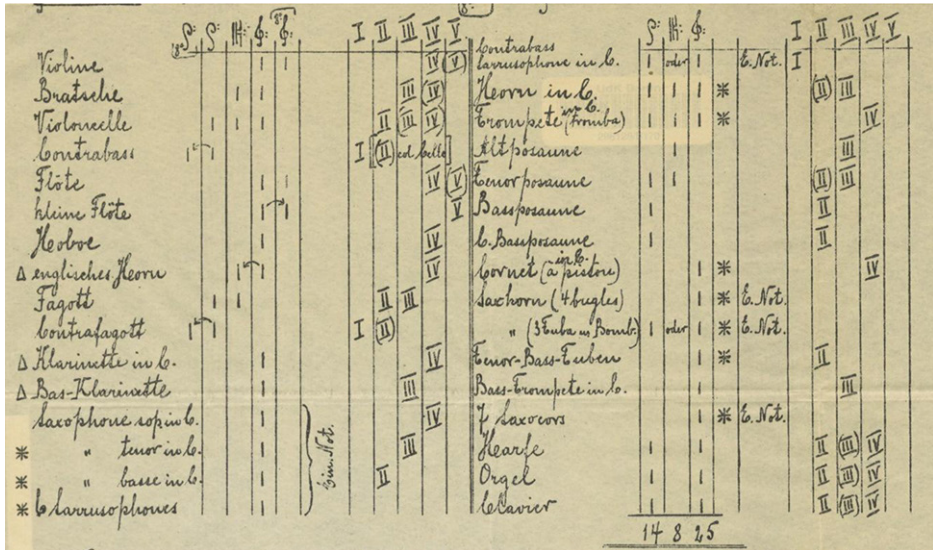 I II III IV V
Violine | | IV (V)
Bratsche | | III (IV)
Violoncelle | | | II (III) IV
Contrabass | I [(II) col. Celle]
Flöte | | IV (V)
kleine Flöte | | V
Hoboe | IV
Δ englisches Horn | | IV
Fagott | | II III
Contrafagott | | I (II)
Δ Klarinette in C. | IV
Δ Bas-Klarinette | III
Saxophone sop in C. | IV
※ " tenor in C. | III
※ " basse in C. | II
※ C Sarrusophones |
Ein. Not.
I II III IV V
Contrabass
Sarrusophone in C. | oder | E. Not. I
Horn in C. | | | ※ (II) III
Trompete in C. (Tromba) | | | ※ IV
Altposaune | III
Tenorposaune | | (II) III
Bassposaune | II
C. Bassposaune | II
Cornet in C. (à piston) | ※ IV
Saxhorn (4 bugles) | ※ E. Not.
" (3 Tuba u Bomb.) | oder | ※ E. Not.
Tenor-Bass-Tuben | ※ II
Bass-Trompete in C. | III
7 Saxocors | ※ E. Not.
Harfe | | II (III) IV
Orgel | | II (III) IV
Clavier | | II (III) IV
14 8 25